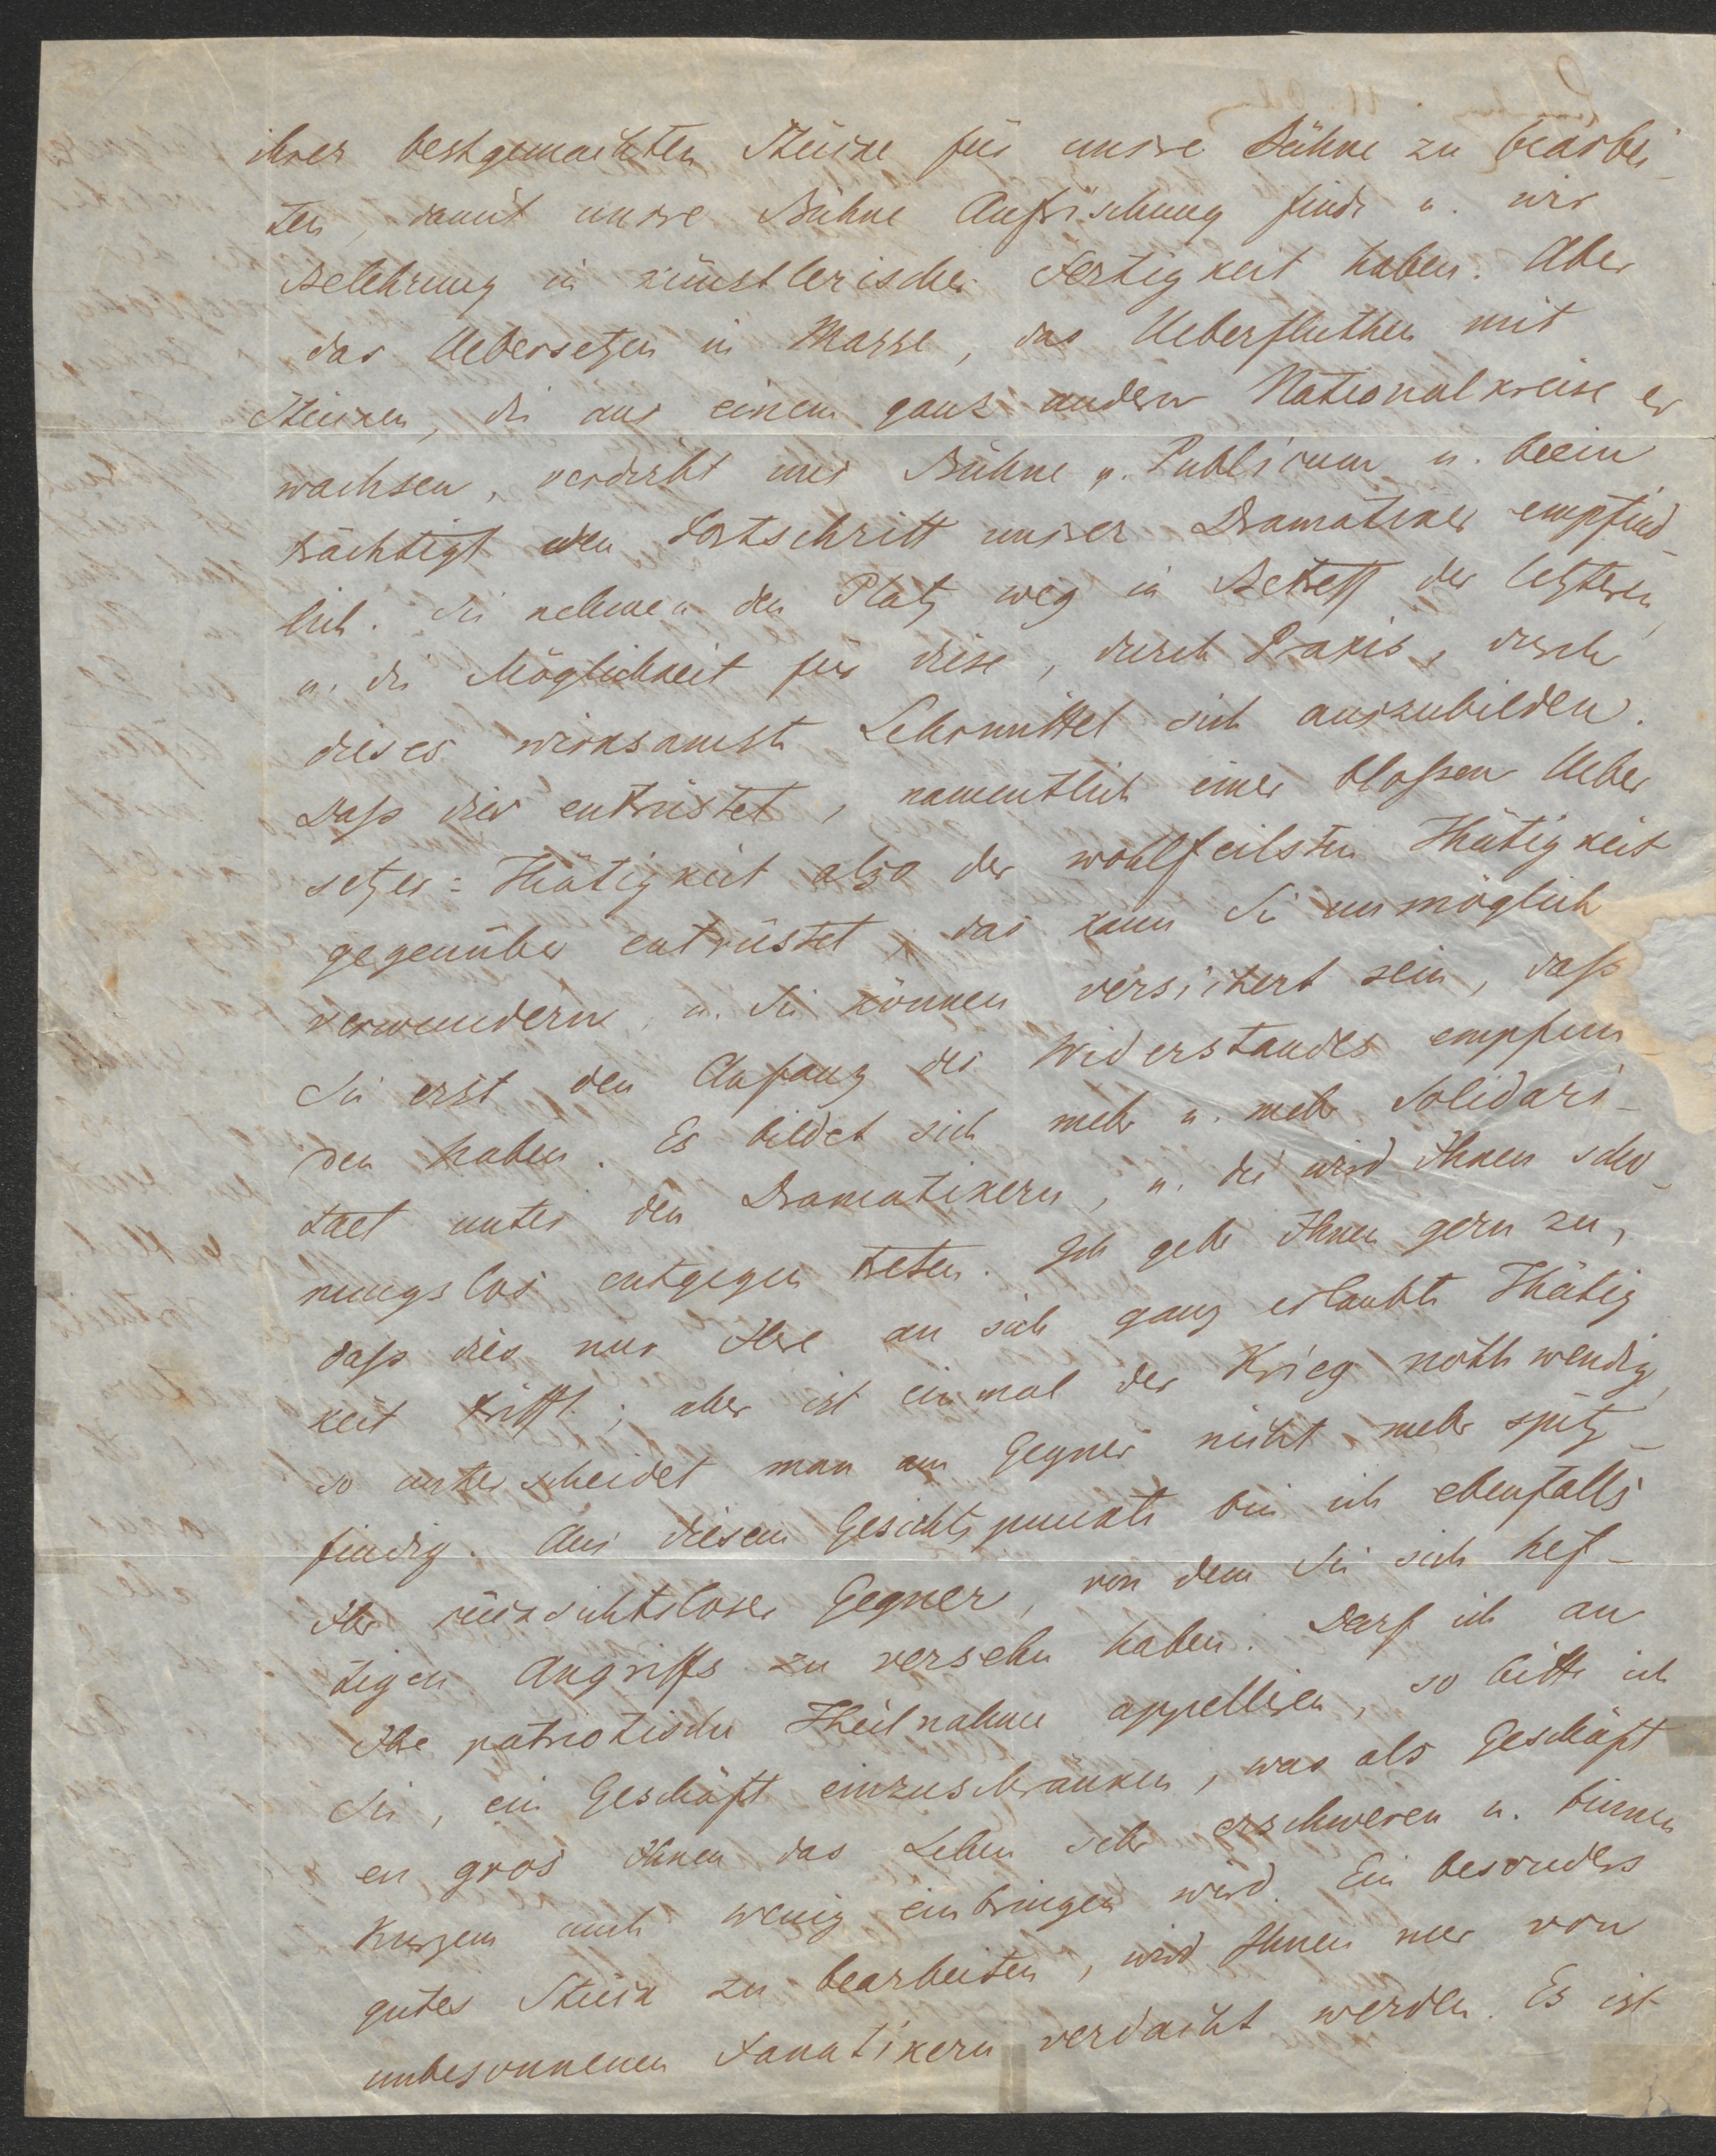 ihrer bestgemachten Stücke für unsre Bühne zu bearbei-
ten, damit unsre Bühne Auffrischung finde u. wir
Belehrung in künstlerischer Fertigkeit haben. Aber
das Uebersetzen in Masse, das Ueberfluthen mit
Stücken, die aus einem ganz andern Nationalkreise er
wachsen, verdirbt uns Bühne u. Publicum u. beein
trächtigt den Fortschritt unsrer Dramatiker empfind-
lich. Sie nehmen den Platz weg in Betreff der letzteren,
u. die Möglichkeit für diese, durch Praxis, durch
dieses wirksamste Lehrmittel sich auszubilden.
Daß dies entrüstet, namentlich einer bloßen Ueber
setzer=Thätigkeit also der wohlfeilsten Thätigkeit
gegenüber entrüstet, das kann Sie unmöglich
verwundern, u. Sie können versichert sein, daß
Sie erst den Anfang des Widerstandes empfun-
den haben. Es bildet sich mehr u. mehr Solidari-
taet unter den Dramatikern, u. die wird Ihnen scho-
nungslos entgegen treten. Ich gebe Ihnen gern zu,
daß dies nur Ihre an sich ganz erlaubte Thätig
keit trifft; aber ist einmal der Krieg nothwendig,
so unterscheidet man am Gegner nicht mehr spitz-
findig. Aus diesem Gesichtspunkte bin ich ebenfalls
Ihr rücksichtsloser Gegner, von dem Sie sich hef-
tigen Angriffs zu versehn haben. Darf ich an
Ihre patriotische Theilnahme appelliren, so bitte ich
Sie, ein Geschäft einzuschränken, was als Geschäft
en gros Ihnen das Leben sehr erschweren u. binnen
Kurzem auch wenig einbringen wird. Ein besonders
gutes Stück zu bearbeiten, wird Ihnen nur von
unbesonnenen Fanatikern verdacht werden. Es ist